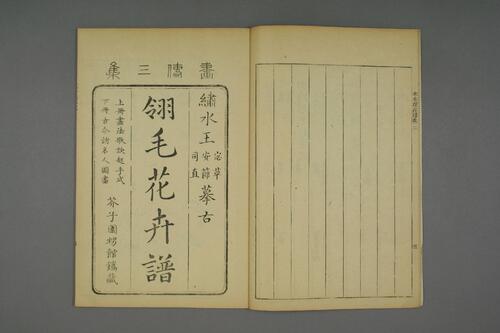 畫傳三集
繡水王
宓草
安節
司直
摹古
翎毛花卉譜
上冊畫法歌訣起手式
下冊古今諸名人圖畫
芥子園甥館鐫藏